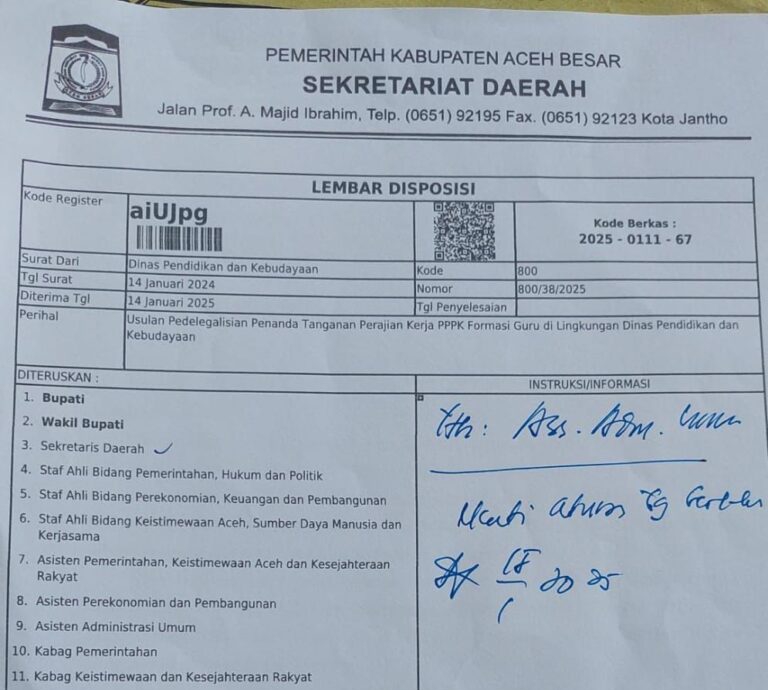 PEMERINTAH KABUPATEN ACEH BESAR
SEKRETARIAT DAERAH
Jalan Prof. A. Majid Ibrahim, Telp. (0651) 92195 Fax. (0651) 92123 Kota Jantho
LEMBAR DISPOSISI
Kode Register
aiUJpg
Kode Berkas :
2025 - 0111 - 67
Surat Dari
Dinas Pendidikan dan Kebudayaan
Kode
800
Tgl Surat
14 Januari 2024
Nomor
800/38/2025
Diterima Tgl
14 Januari 2025
Tgl Penyelesaian
Perihal
Usulan Pedelegalisian Penanda Tanganan Perajian Kerja PPPK Formasi Guru di Lingkungan Dinas Pendidikan dan
Kebudayaan
DITERUSKAN :
1. Bupati
2. Wakil Bupati
3. Sekretaris Daerah
4. Staf Ahli Bidang Pemerintah, Hukum dan Politik
5. Staf Ahli Bidang Perekonomian, Keuangan dan Pembangunan
6. Staf Ahli Bidang Keistimewaan Aceh, Sumber Daya Manusia dan
Kerjasama
7. Asisten Pemerintahan, Keistimewaan Aceh dan Kesejahteraan
Rakyat
8. Asisten Perekonomian dan Pembangunan
9. Asisten Administrasi Umum
10. Kabag Pemerintahan
11. Kabag Keistimewaan dan Kesejahteraan Rakyat
INSTRUKSI/INFORMASI
Yth: Ass. Adm. Umum
aturan yg
2025